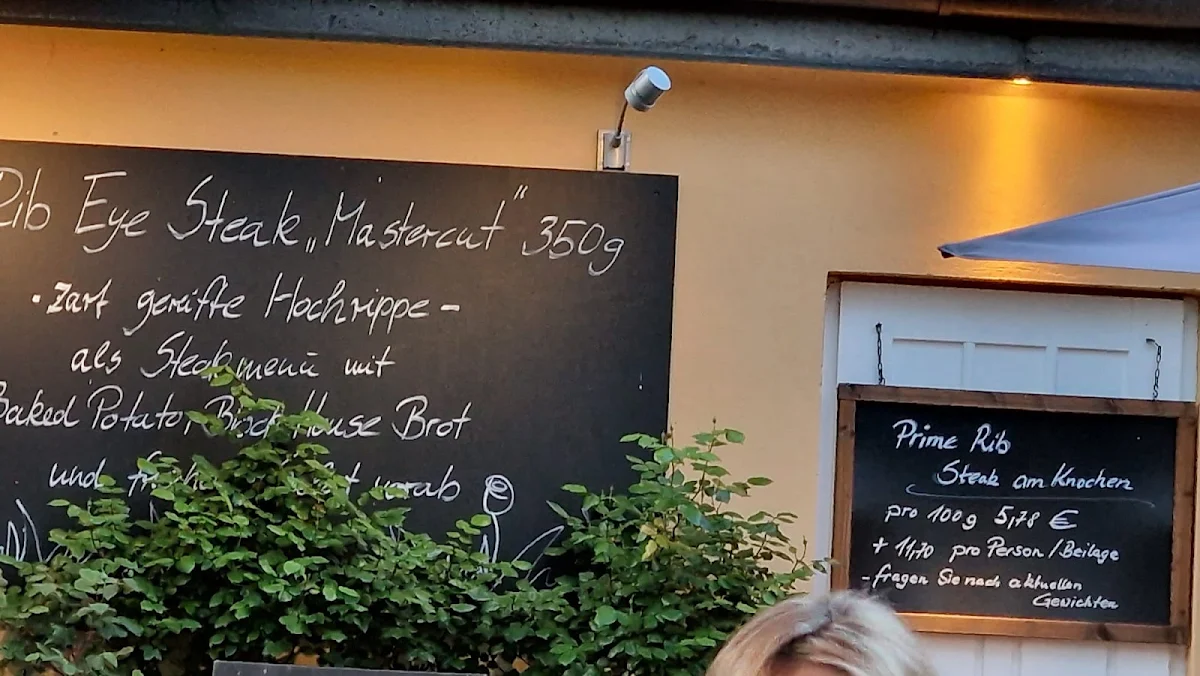 Rib Eye Steak „Mastercut“ 350g
• zart gereifte Hochrippe –
als Steakmenü mit
Baked Potato, Block House Brot
und vorab
Prime Rib
Steak am Knochen
pro 100g 5,78 €
+ 11,70 pro Person/Beilage
- fragen Sie nach aktuellen
Gewichten